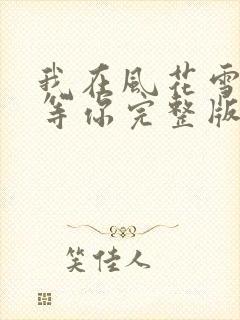 我在風花雪
等你完整版
笑佳人